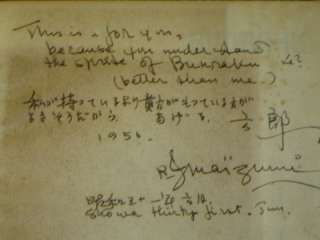 This is for you,
because you understand
the spirit of Bunraku
(better than me.)
私が持っているより貴方がもっている方が
よさそうだから あげる。
1956.
R. Imaizumi
Showa thirty first. Jun.